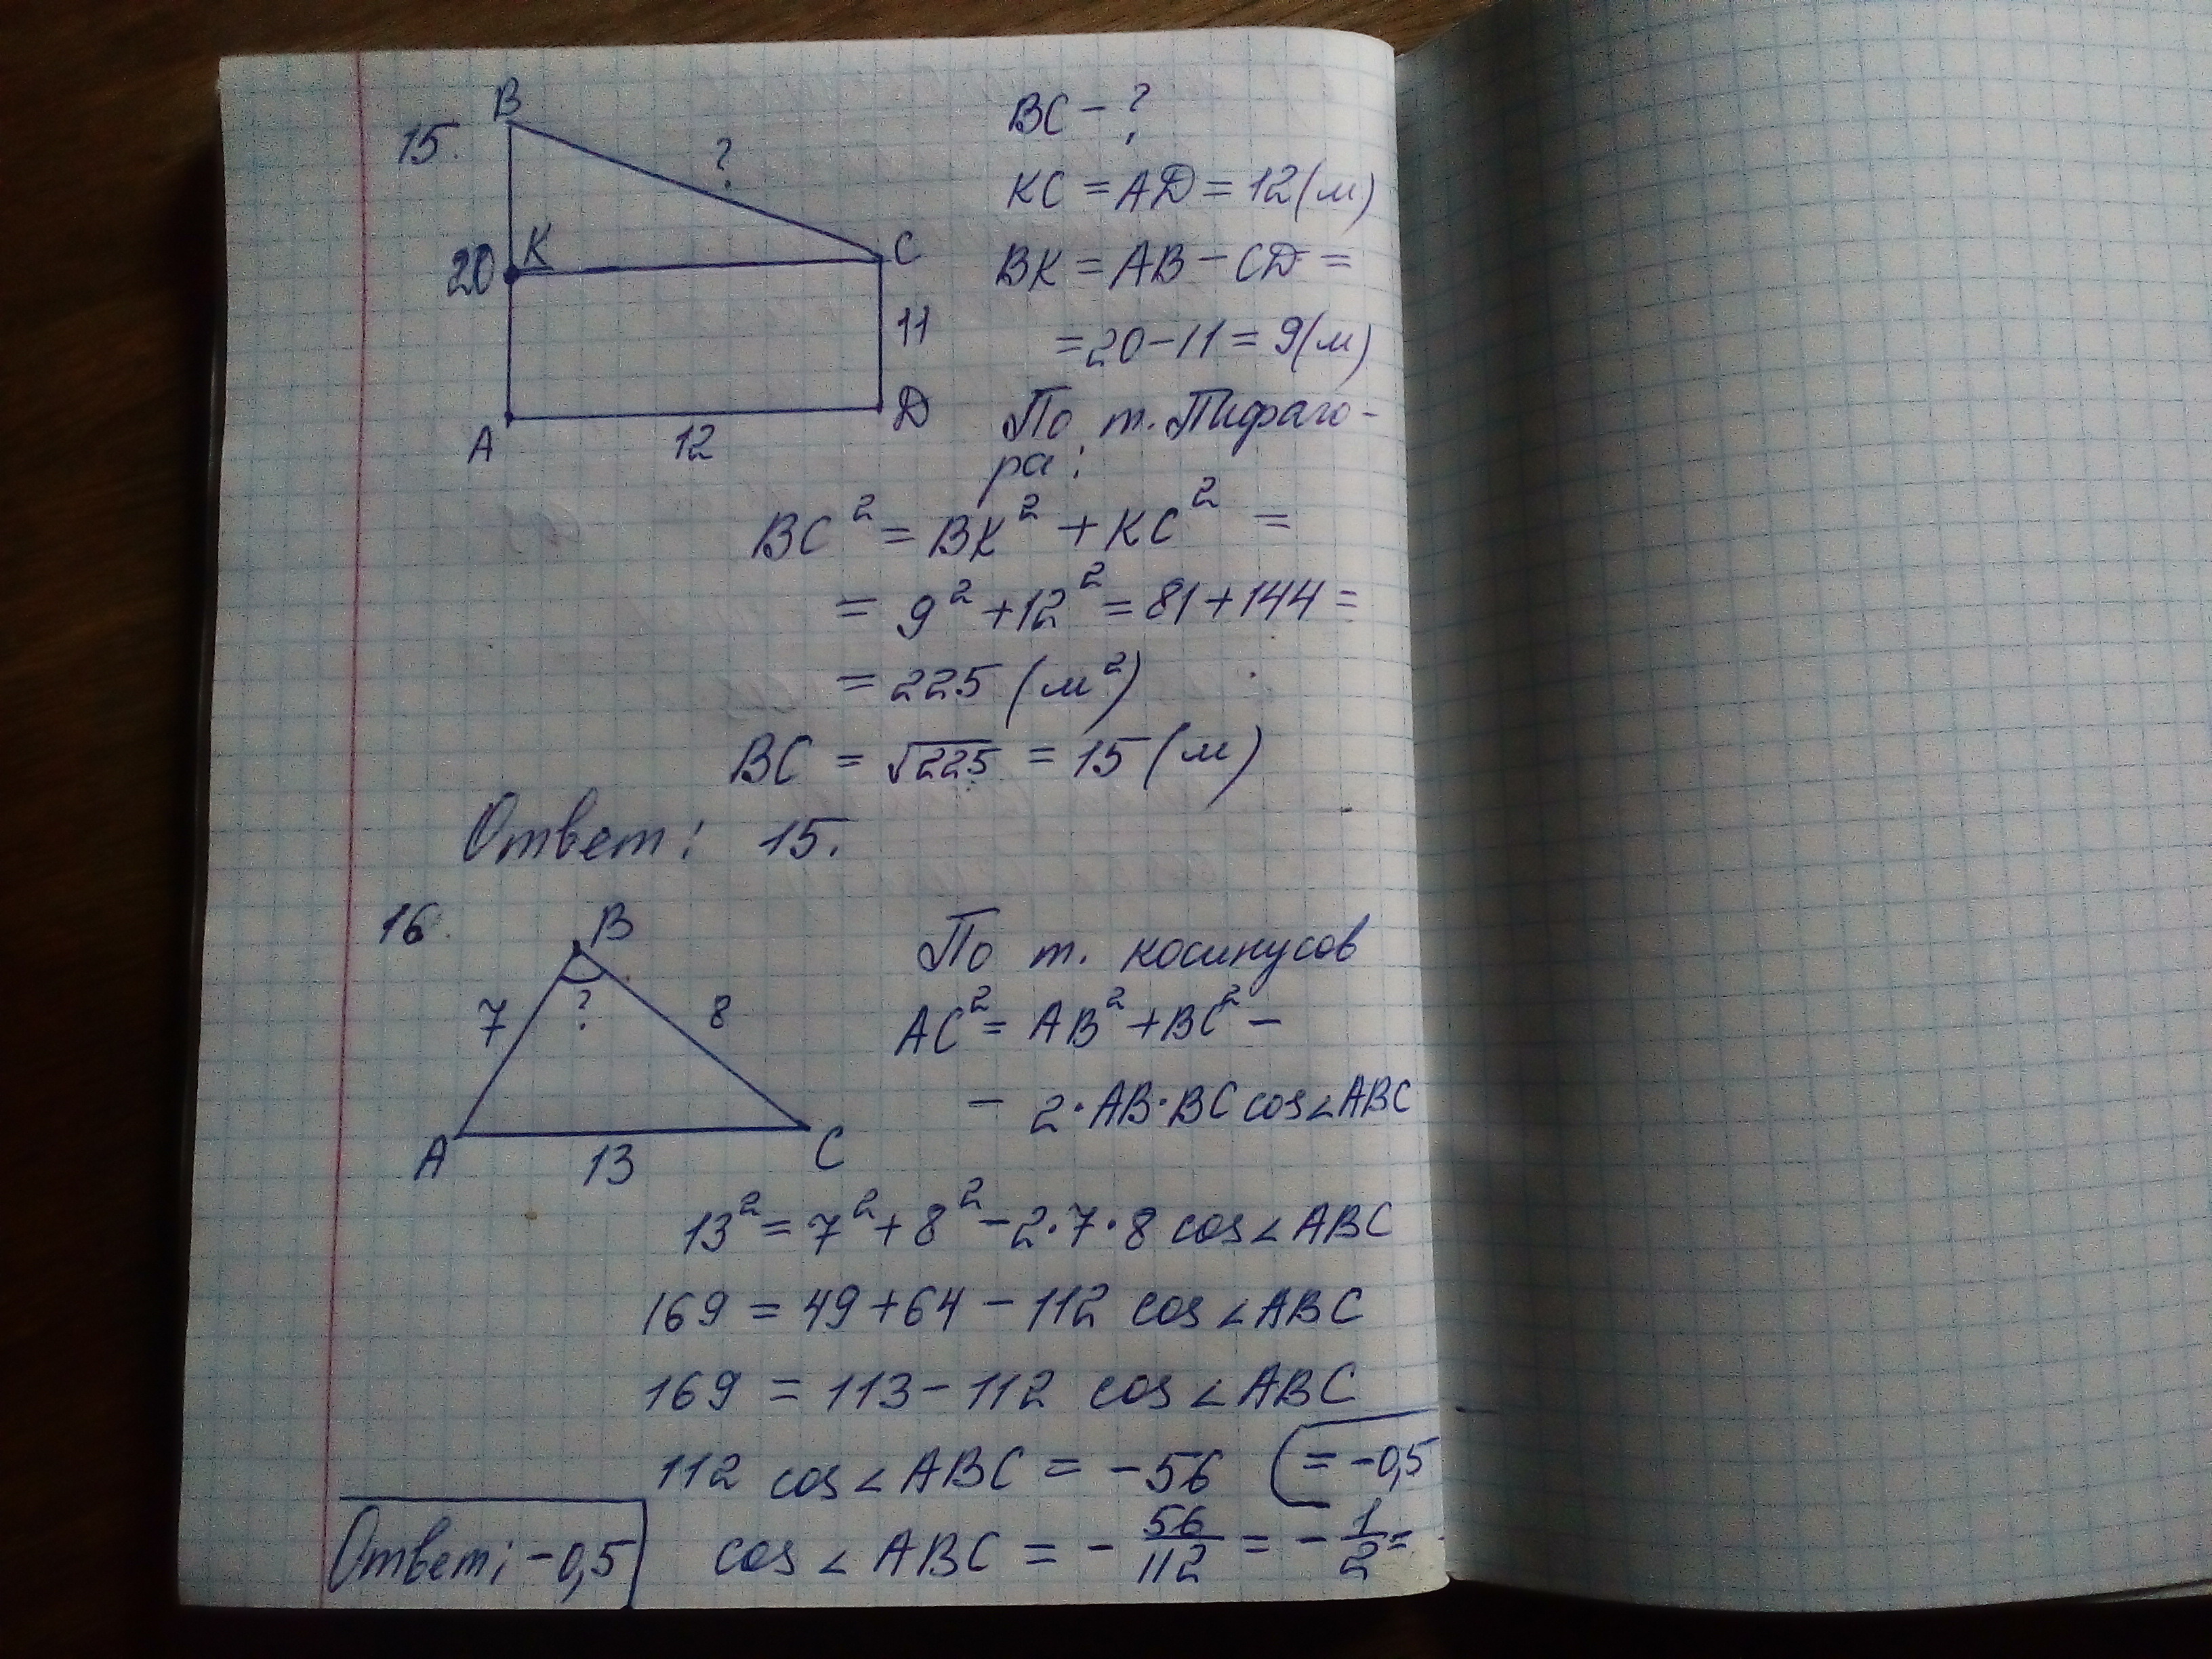 15.
B
?
K
C
20
11
A
12
D
BC - ?
KC = AD = 12 (м)
BK = AB - CD =
= 20 - 11 = 9 (м)
По т. Пифаго-
ра:
BC² = BK² + KC² =
= 9² + 12² = 81 + 144 =
= 225 (м²)
BC = √225 = 15 (м)
Ответ: 15.
16.
B
7
?
8
A
13
C
По т. косинусов
AC² = AB² + BC² -
- 2·AB·BC cos∠ABC
13² = 7² + 8² - 2·7·8 cos∠ABC
169 = 49 + 64 - 112 cos∠ABC
169 = 113 - 112 cos∠ABC
112 cos∠ABC = -56
cos∠ABC = - 56/112 = - 1/2 =
= -0,5
Ответ: -0,5